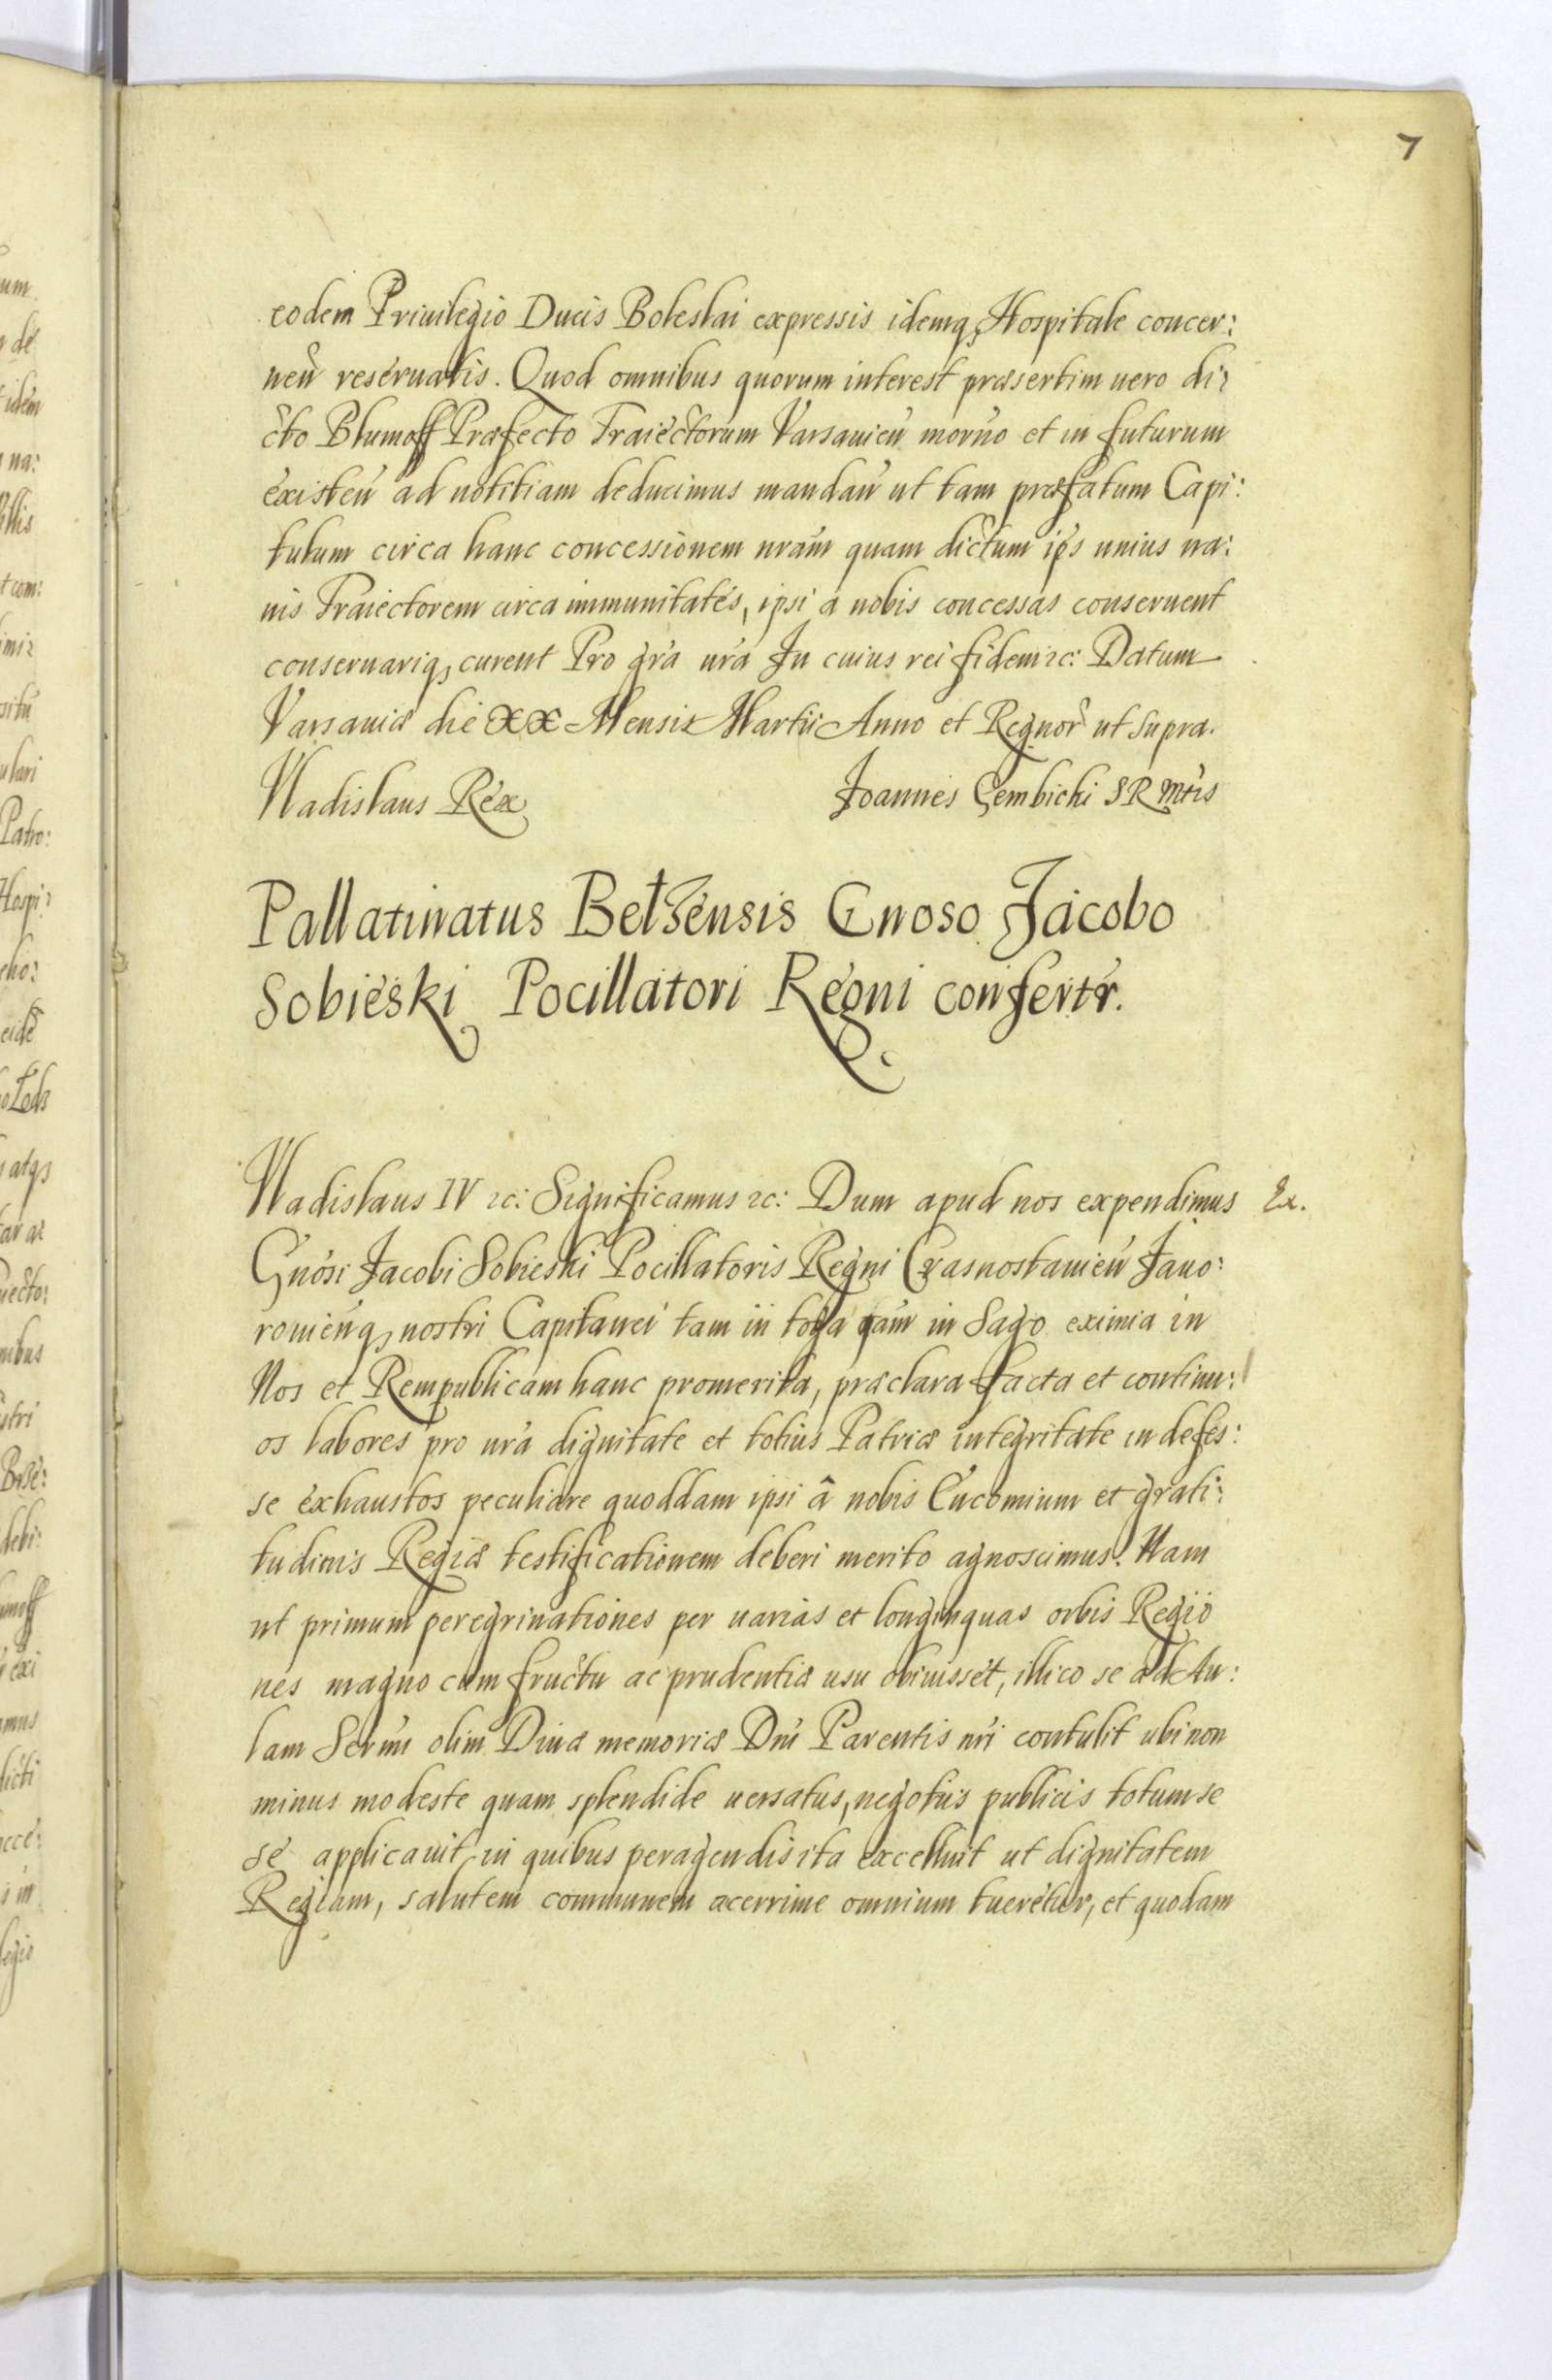 7
eodem Priuilegio Ducis Boleslai expressis idemq, Hospitale concer:
neñ reseruatis. Quod omnibus quorum interest præsertim uero di:
cto Blumoff Præfecto Traiectorum Varsauieñ moruo et in futurum
existeñ ad notitiam deducimus mandañ ut tam præfatum Capi:
tulum circa hanc concessionem nram quam dictum ips unius na:
uis Traiectorem circa immunitates, ipsi a nobis concessas conseruent
conseruariq, curent Pro gra nra In cuius rei fidem ꝛc: Datum
Varsauiæ die XX Mensis Martii Anno et Regnor ut supra.
Vladislaus Rex Joannes Gembicki SRMtis
Pallatinatus Belzensis Gnoso Jacobo
Sobieski Pocillatori Regni confertr.
Vladislaus IV ꝛc: Significamus ꝛc: Dum apud nos expendimus Ex.
Gnosi Jacobi Sobieski Pocillatoris Regni Crasnostauieñ Jauo:
rouieñq, nostri Capitanei tam in toga qam in Sago eximia in
Nos et Rempublicam hanc promerita, præclara facta et continu:
os labores pro nra dignitate et totius Patriæ integritate indefes:
se exhaustos peculiare quoddam ipsi â nobis Encomium et grati:
tudinis Regiæ testificationem deberi merito agnoscimus. Nam
ut primum peregrinationes per uarias et longinquas orbis Regio
nes magno cum fructu ac prudentiæ usu obiuisset, illico se ad Au:
lam Sermi olim Diuæ memoriæ Dni Parentis nri contulit ubi non
minus modeste quam splendide uersatus, negotiis publicis totum se
se applicauit in quibus peragendis ita excelluit ut dignitatem
Regiam, salutem communem acerrime omnium tueretur, et quodam